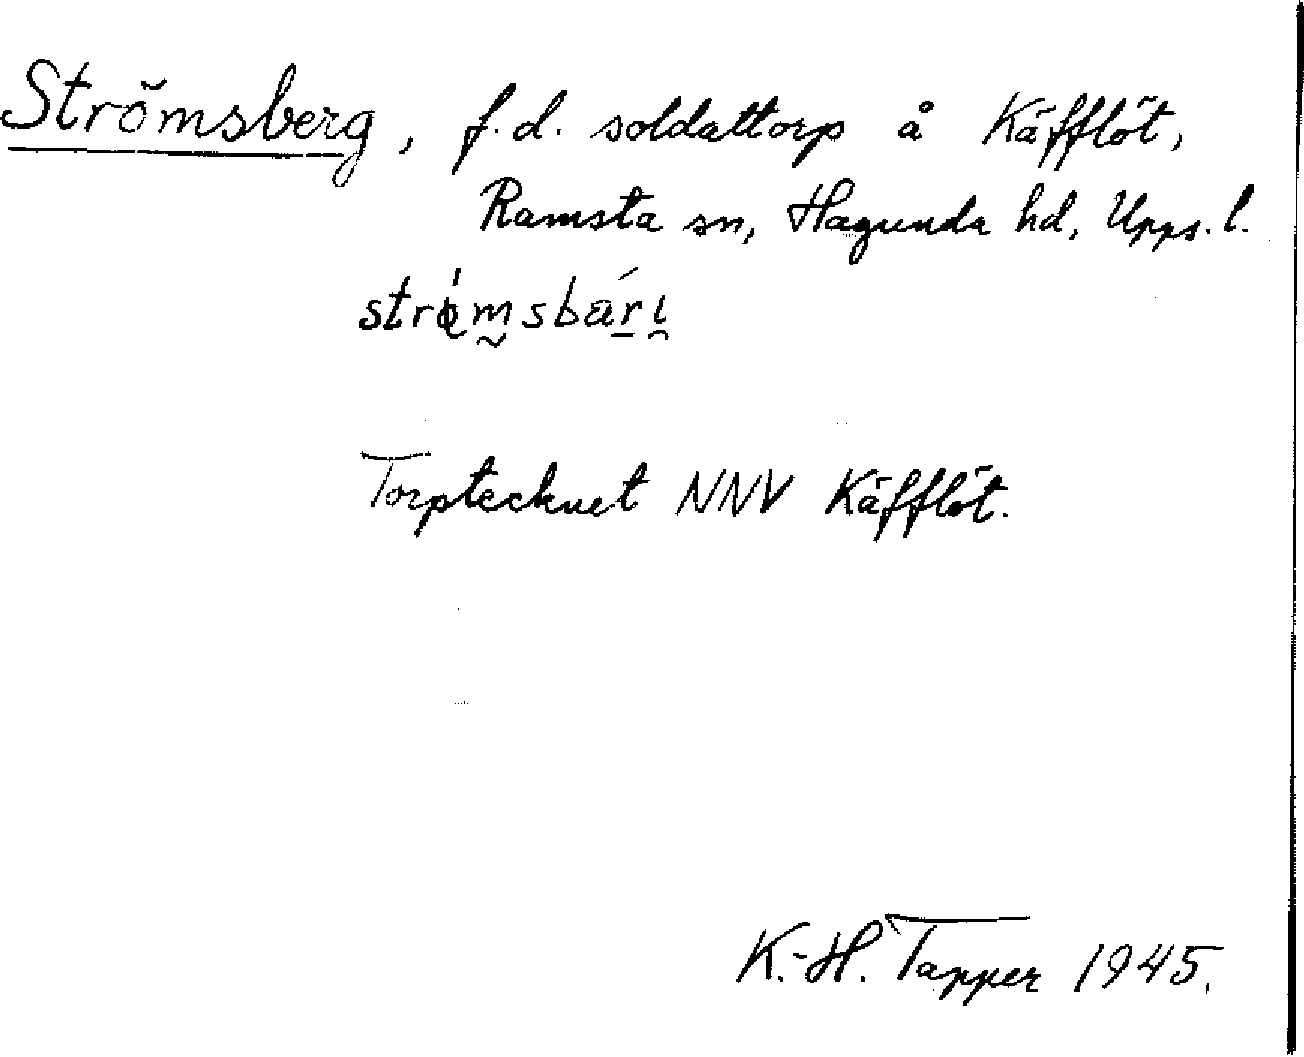 Strömsberg, f.d. soldattorp å Käfflöt,
Ramsta sn, Hagunda hd, Upps. l.
Torptecknet NNV Käfflöt.
K.-H. Tapper 1945.